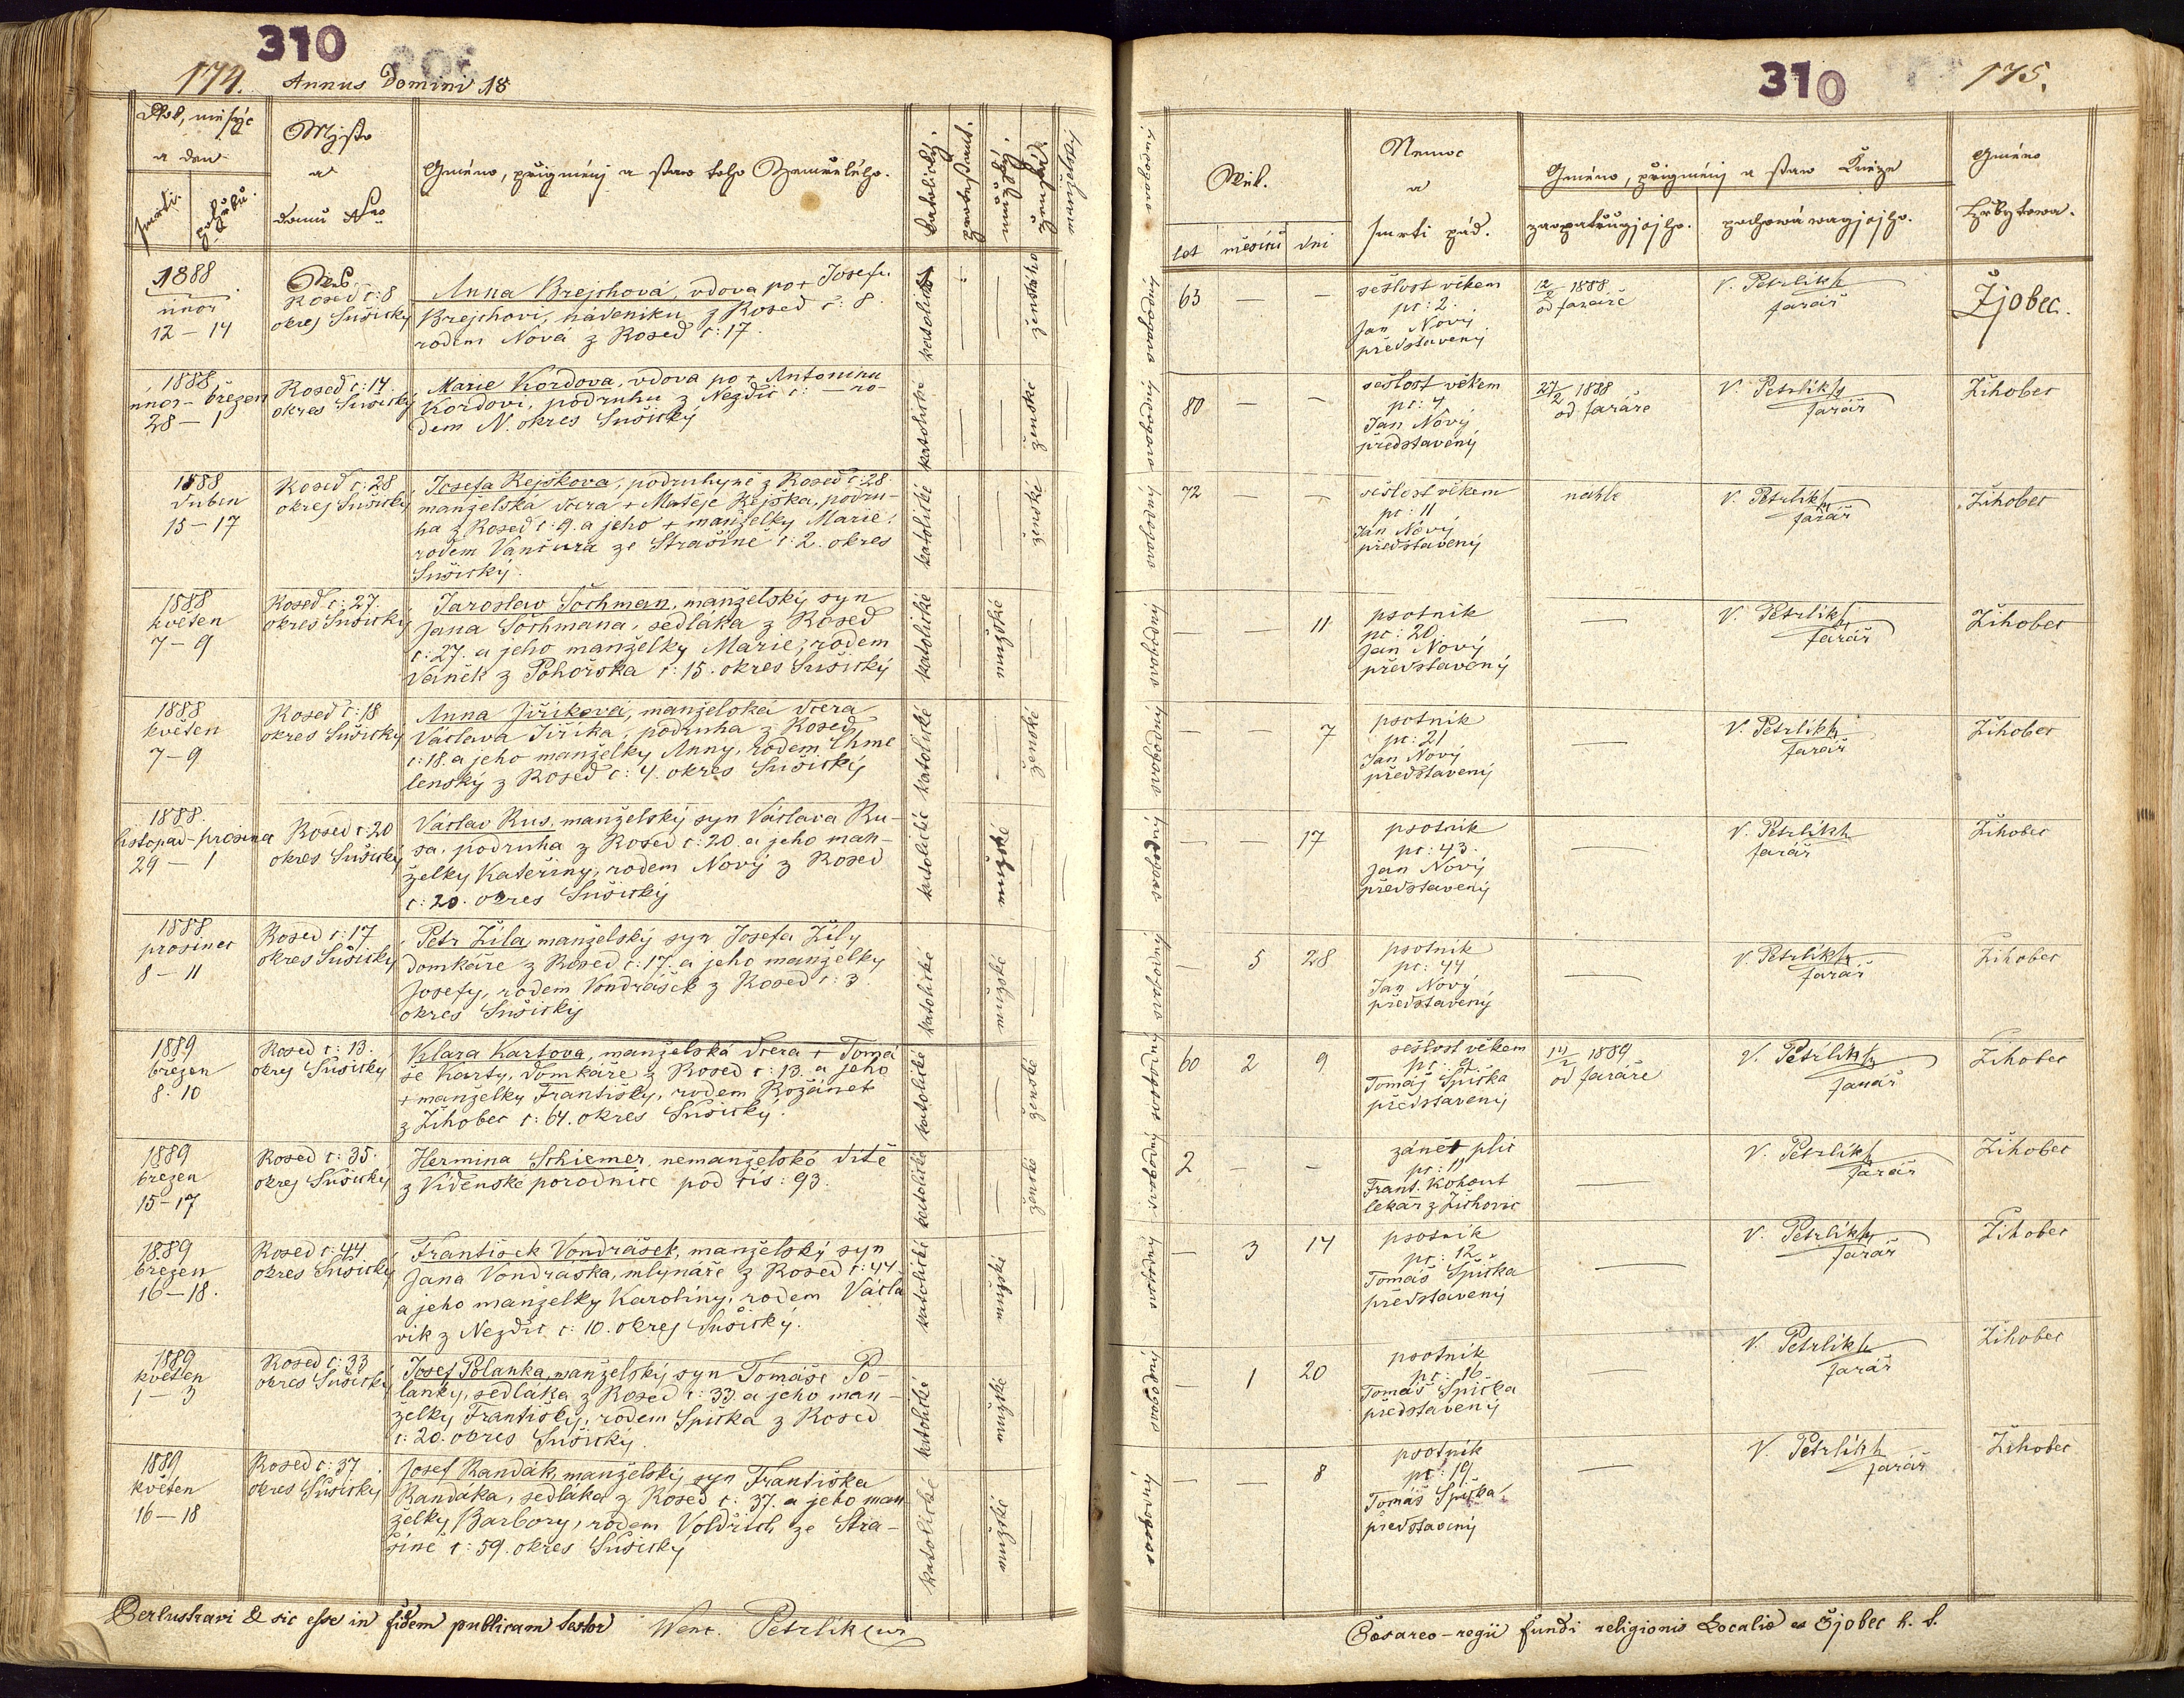 310
174. Annus Domini 18
Rok, měsýc
a den
smrti. pohřbu.
Mjsto
a
domu Nro
Gméno, přigmenj a staw toho Zemřelého.
katolický.
protestant.
mužský.
ženská.
manželský
1888
únor
12 – 14
Ves.
Rosed č: 8
okres Sušický
Anna Brejchová, vdova po + Josefu
Brejchovi, nádeníku z Rosed č: 8
rodem Nová z Rosed č: 17.
katolické
ženského
1888
únor – březen
28 – 1
Rosed č: 14.
okres Sušický
Marie Kordova, vdova po + Antonínu
Kordovi, podruhu z Nezdic č: – ro-
dem N. okres Sušický
katolické
ženské
1888
duben
15 – 17
Rosed č: 28
okres Sušický
Josefa Rejškova, podruhyně z Rosed č: 28
manželská dcera + Matěje Rejška, podru-
ha z Rosed č: 9. a jeho + manželky Marie,
rodem Vančura ze Strašině č: 2. okres
Sušický.
katolické
ženské
1888
květen
7 – 9
Rosed č: 27.
okres Sušický
Jaroslav Sochman, manželský syn
Jana Sochmana, sedláka z Rosed
č: 27. a jeho manželky Marie, rodem
Vaněk z Pohorska č: 15. okres Sušický
katolické
mužské
1888
květen
7 – 9
Rosed č: 18
okres Sušický
Anna Jiříkova, manželská dcera
Václava Jiříka, podruha z Rosed
č: 18. a jeho manželky Anny, rodem Chme
lenský z Rosed č: 4. okres Sušický
katolické
ženské
1888.
listopad – prosinec
29 – 1
Rosed č: 20
okres Sušický
Václav Rus, manželský syn Václava Ru-
sa, podruha z Rosed č: 20. a jeho man-
želky Kateřiny, rodem Nový z Rosed
č: 20. okres Sušický
katolické
mužské
1888
prosinec
8 – 11
Rosed č: 17
okres Sušický
Petr Žíla, manželský syn Josefa Žíly
domkáře z Rosed č: 17. a jeho manželky
Josefy, rodem Vondrášek z Rosed č: 3
okres Sušický
katolické
mužské
1889
březen
8. 10
Rosed č: 13.
okres Sušický
Klara Kartova, manželská dcera + Tomá
še Karty, domkáře z Rosed č: 13. a jeho
+ manželky Františky, rodem Rozánek
z Žihobec č: 64. okres Sušický.
katolické
ženské
1889
březen
15 – 17
Rosed č: 35.
okres Sušický
Hermina Schiemer, nemanželské dítě
z Vídenské porodnice pod čís: 93.
katolické
ženské
1889
březen
16 – 18.
Rosed č: 44
okres Sušický
František Vondrášek, manželský syn
Jana Vondráška, mlynáře z Rosed č: 44.
a jeho manzelky Karoliny, rodem Václa
vík z Nezdic č: 10. okres Sušický.
katolické
mužské
1889
květen
1 – 3
Rosed č: 33
okres Sušický
Josef Polanka, manželský syn Tomáše Po-
lanky, sedláka z Rosed č: 33 a jeho man-
želky Františky, rodem Spička z Rosed
č: 20. okres Sušický.
katolické
mužské
1889
květen
16 – 18
Rosed č: 37.
okres Sušický
Josef Randák, manželský syn Františka
Randáka, sedláka z Rosed č: 37. a jeho man
želky Barbory, rodem Voldřich ze Stra-
šině č: 59. okres Sušický
katolické
mužské
Perlustravi & sic esse in fidem publicam testor Wenc. Petrlik
310
175.
svobodný
Wěk.
let měsíců dni
Nemoc
a
smrti pád.
Gméno, přigmenj a staw Kněze
zaopatřugjcjho. pochowáwagjcjho.
Gméno
hřbytowa.
63 — —
sešlost věkem
pč: 2.
Jan Nový
představený
12/2 1888
od faráře
V. Petrlikh
farář
Žjobec.
svobodný
80 — —
sešlost věkem
pč: 4
Jan Nový
představený
27/2 1888
od faráře
V. Petrlikh
farář
Žihobec
svobodný
72 — —
sešlost věkem
pč: 11
Jan Nový
představený
nahle
V. Petrlikh
farář
Žihobec
svobodný
— — 11
psotník
pč: 20.
Jan Nový
představený
—
V. Petrlikh
farář
Žihobec
svobodný
— — 7
psotník
pč: 21
Jan Nový
představený
—
V. Petrlikh
farář
Žihobec
svobodný
— — 17
psotník
pč: 43.
Jan Nový
představený
—
V. Petrlikh
farář
Žihobec
svobodný
— 5 28
psotník
pč: 44
Jan Nový
představený
—
V. Petrlikh
farář
Žihobec
svobodný
60 2 9
sešlost věkem
pč: 9.
Tomáš Spička
představený
od faráře
1889
V. Petrlikh
farář
Žihobec
svobodný
2 — —
zánět plic
pč: 11
Frant. Kohout
lekař z Žichovic
—
V. Petrlikh
farář
Žihobec
svobodný
— 3 14
psotník
pč: 12.
Tomáš Spička
představený
—
V. Petrlikh
farář
Žihobec
svobodný
— 1 20
psotník
pč: 16
Tomáš Spička
představený
—
V. Petrlikh
farář
Žihobec
svobodný
— — 8
psotník
pč: 19.
Tomáš Spička
představený
—
V. Petrlikh
farář
Žihobec
svobodný
Cæsareo-regii fundi religionis Localis Žjobec